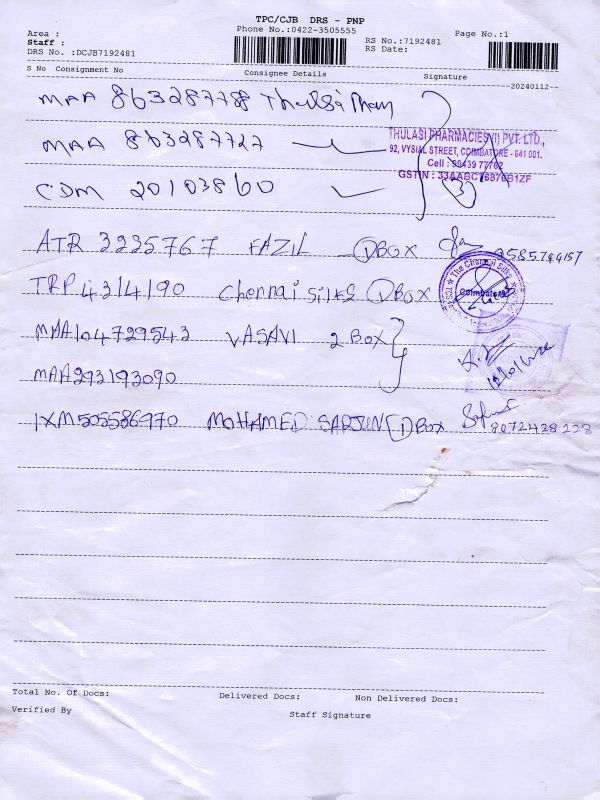 TPC/CJB DRS - PNP
Area :
Phone No.:0422-3505555
Page No.:1
Staff :
RS No.:7192481
DRS No. :DCJB7192481
RS Date:
S No Consignment No
Consignee Details
Signature
20240112
MAA 863287788 Thulsi Pham
MAA 863287727
CDM 20103860
THULASI PHARMACIES (I) PVT. LTD.,
92, VYSIAL STREET, COIMBATORE - 641 001.
Cell : 99439 77762
GSTIN :
3
ATR 3235767 FAZIL 1 BOX
TRP 4314190 Chennai silks 1 BOX
The Chennai Silks
Coimbatore
MAA104729543 VASAVI 2 BOX
MAA293193090
12/01/24
IXM505586970 MOHAMED SARJUN 1 Box
9072428228
Total No. Of Docs:
Delivered Docs:
Non Delivered Docs:
Verified By
Staff Signature